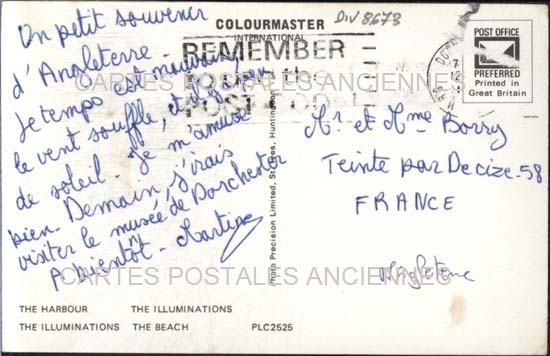 Un petit souvenir
d'Angleterre.
Le temps est mauvais,
le vent souffle, et
de soleil - Je m'amuse
bien - Demain, j'irais
visiter le musée de Dorchester
A bientôt - Martine
COLOURMASTER
INTERNATIONAL
DIV 8673
REMEMBER
POST
POST OFFICE
PREFERRED
Printed in
Great Britain
CARTES POSTALES ANCIENNES
Photo Precision Limited, St. Ives, Huntingdon
Mr. et Mme Borry
Teinte par Decize - 58
FRANCE
Angleterre
CARTES POSTALES ANCIENNES
THE HARBOUR THE ILLUMINATIONS
THE ILLUMINATIONS THE BEACH PLC2525